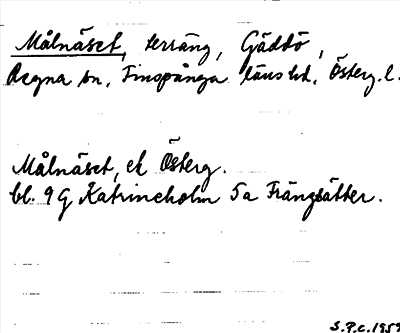 Målnäset, terräng, Gäddö,
Regna sn, Finspånga läns hd, Österg. l.
Målnäset, ek Österg.
bl. 9G Katrineholm 5a Frängsätter.
S.P.C. 1959